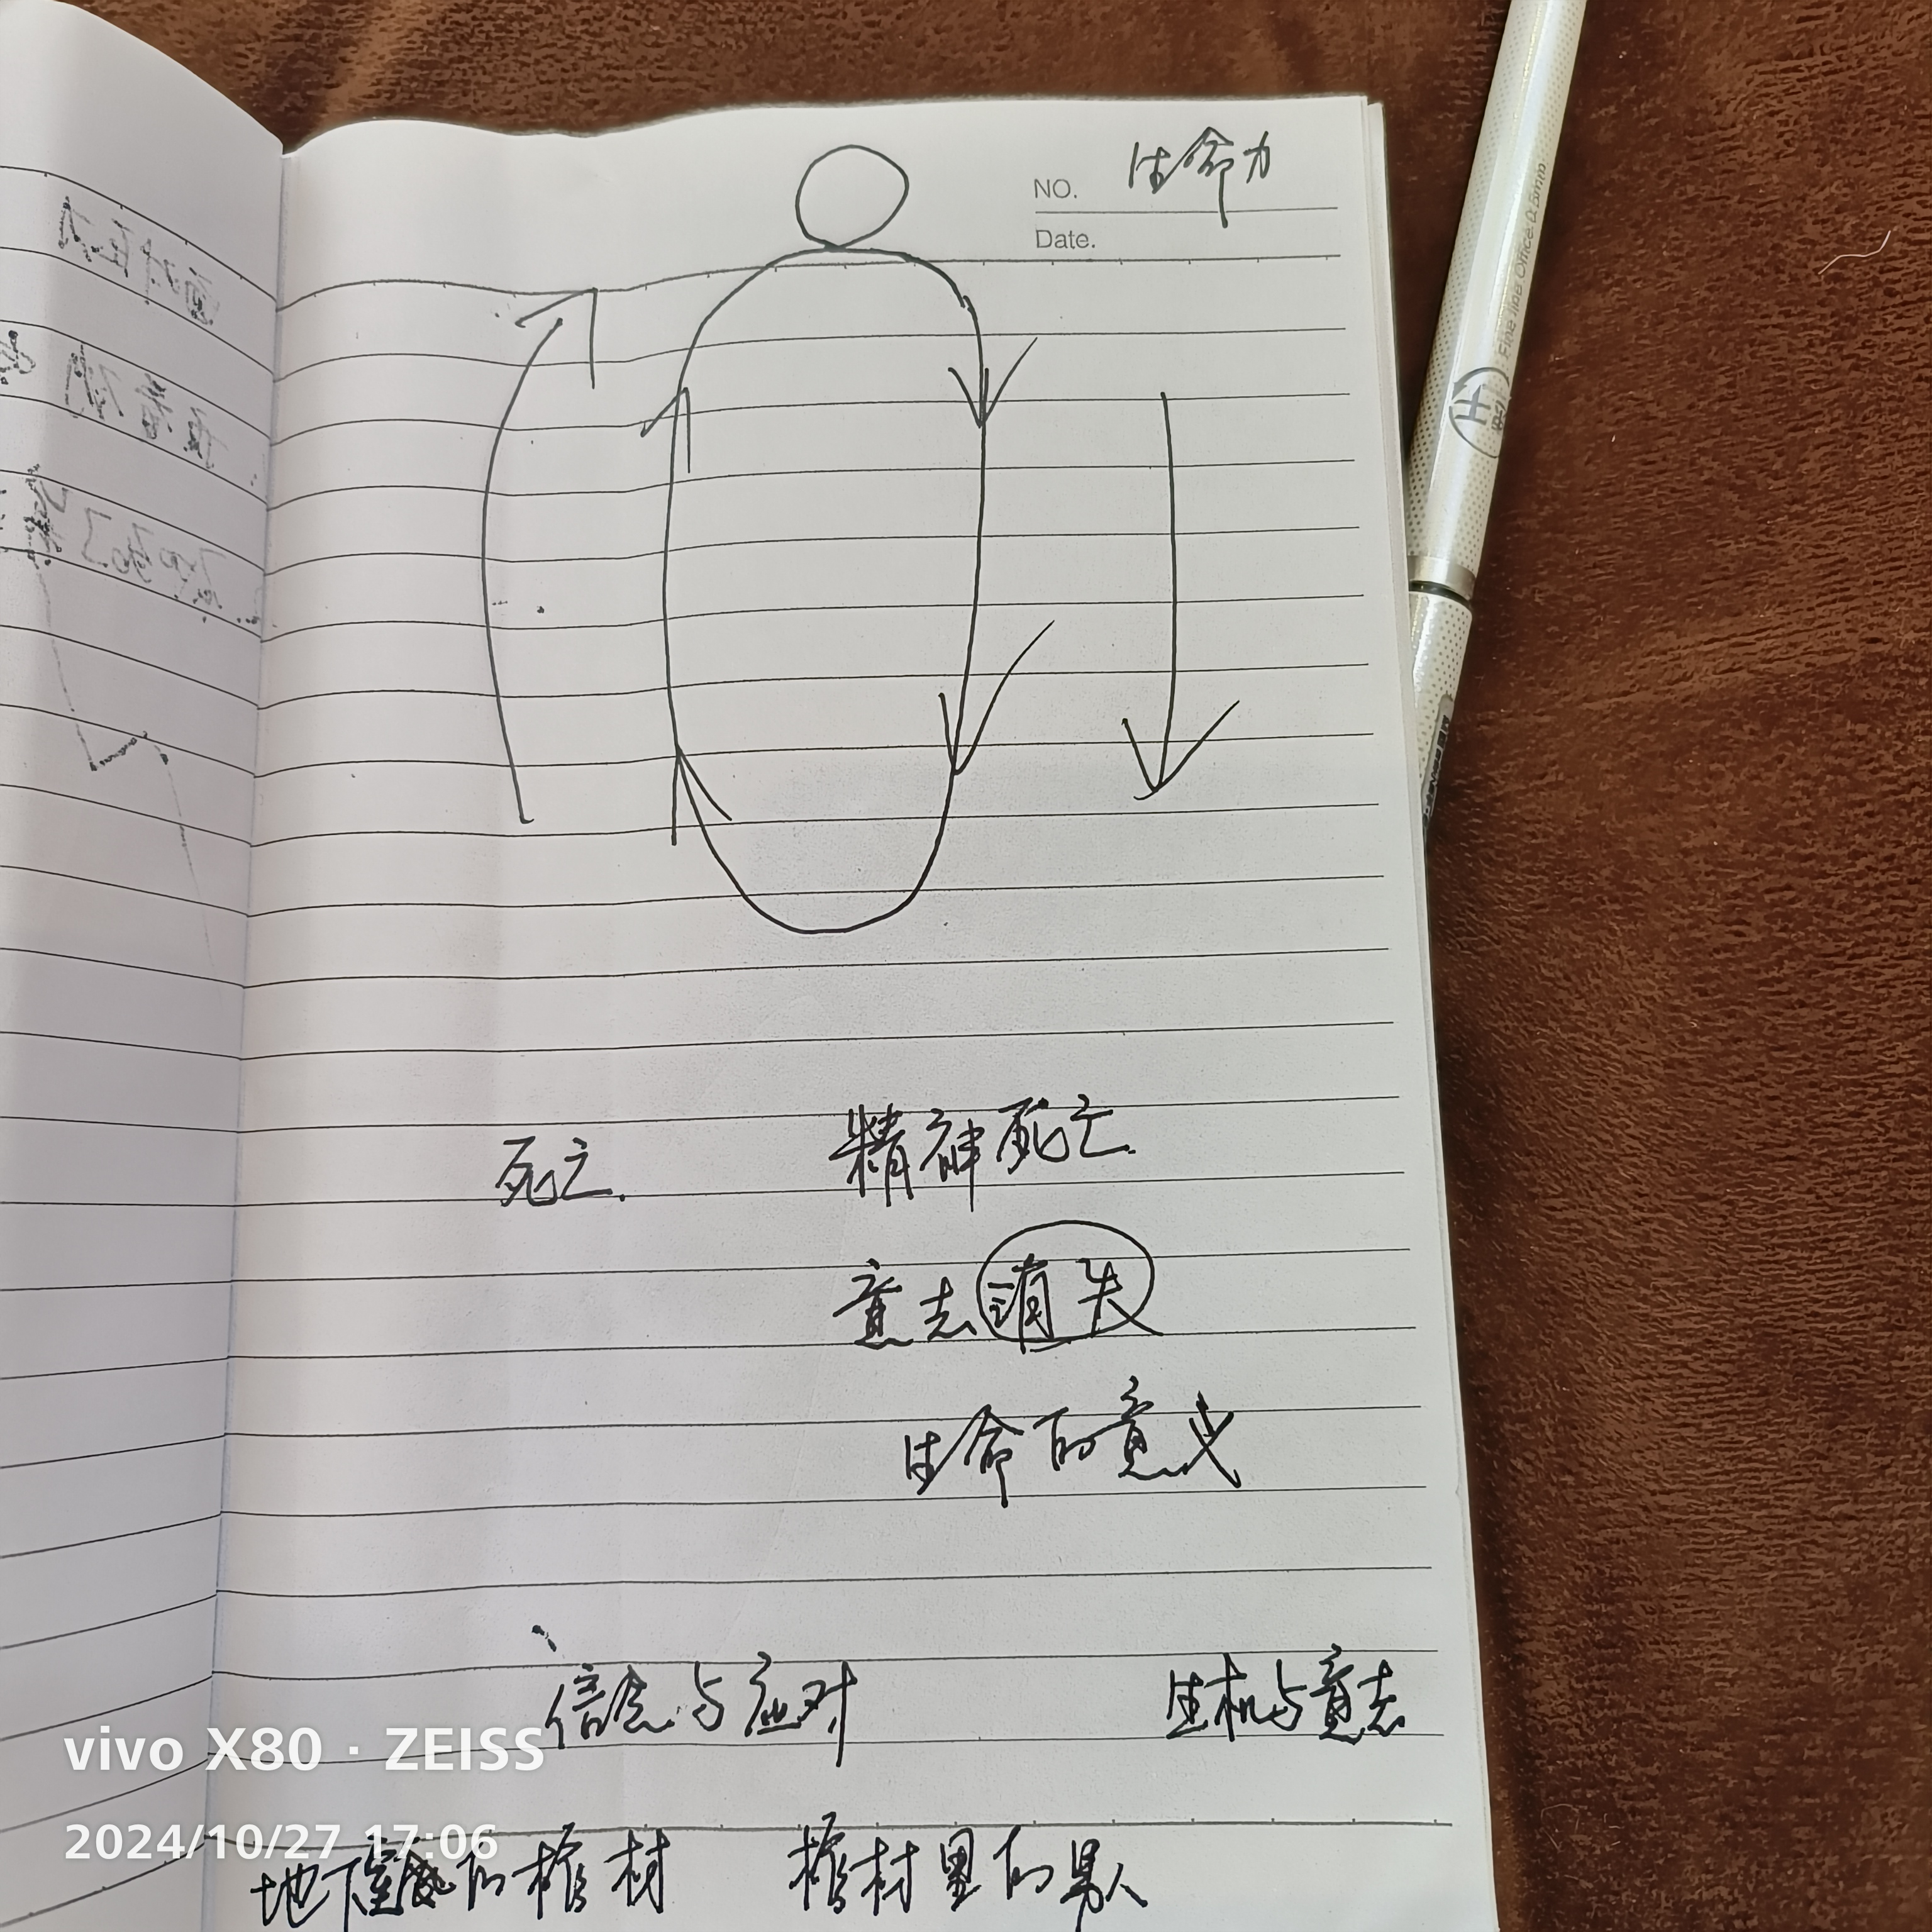 NO. 生命力
Date.
死亡. 精神死亡.
意志消失
生命的意义
信念与应对 生机与意志
地下室的棺材 棺材里的男人
vivo X80 · ZEISS
2024/10/27 17:06
Fine line Office 0.5mm